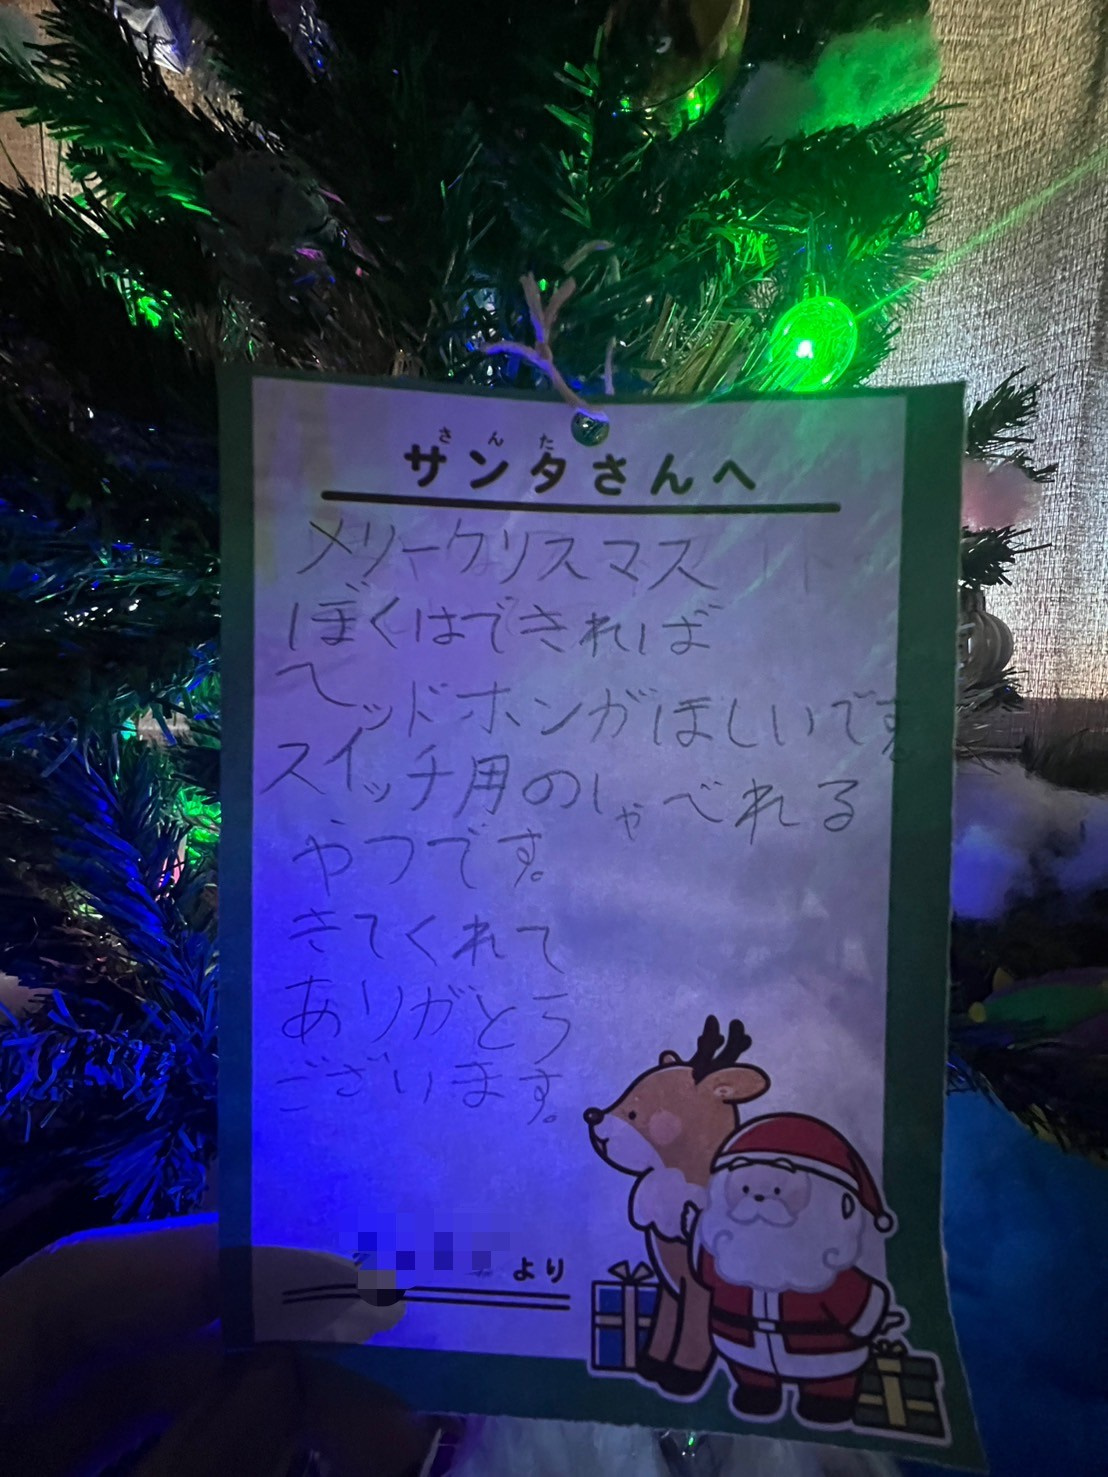 さんた
サンタさんへ
メリークリスマス
ぼくはできれば
ヘッドホンがほしいです。
スイッチ用のしゃべれる
やつです。
きてくれて
ありがとう
ございます。
より